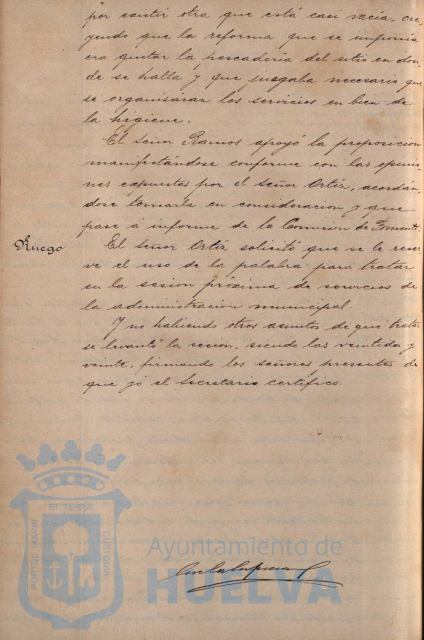 por existir otra que está casi vacía, cre
yendo que la reforma que se imponía
era quitar la pescadería del sitio en don
de se halla y que juzgaba necesario que
se organisaran los servicios en bien de
la higiene.
El Señor Ramos apoyó la proposicion
manifestándose conforme con las opinio
nes expuestas por el Señor Ortiz, acordán
dose tomarla en consideracion y que
pase á informe de la Comision de Fomento.
Ruego
El Señor Ortiz solicitó que se le reser
ve el uso de la palabra para tratar
en la sesion próxima de servicios de
la administracion municipal
Y no habiendo otros asuntos de que tratar
se levantó la sesion, siendo las veintidos y
veinte, firmando los señores presentes de
que yó el Secretario certifico.
PORTUS MARIS ET TERRAE CUSTODIA
Ayuntamiento de
HUELVA